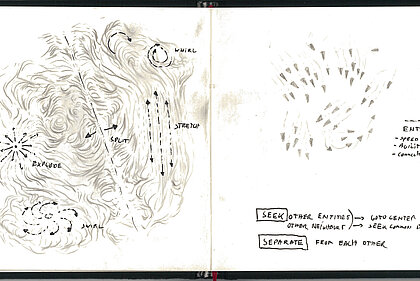 WHIRL
STRETCH
SPLIT
EXPLODE
SWIRL
ENT
- SPEED
- AGILIT
- CONNECT
SEEK OTHER ENTITIES → GOTO CENTER
OTHER NEIGHBOUR → SEEK COMMON
SEPARATE FROM EACH OTHER